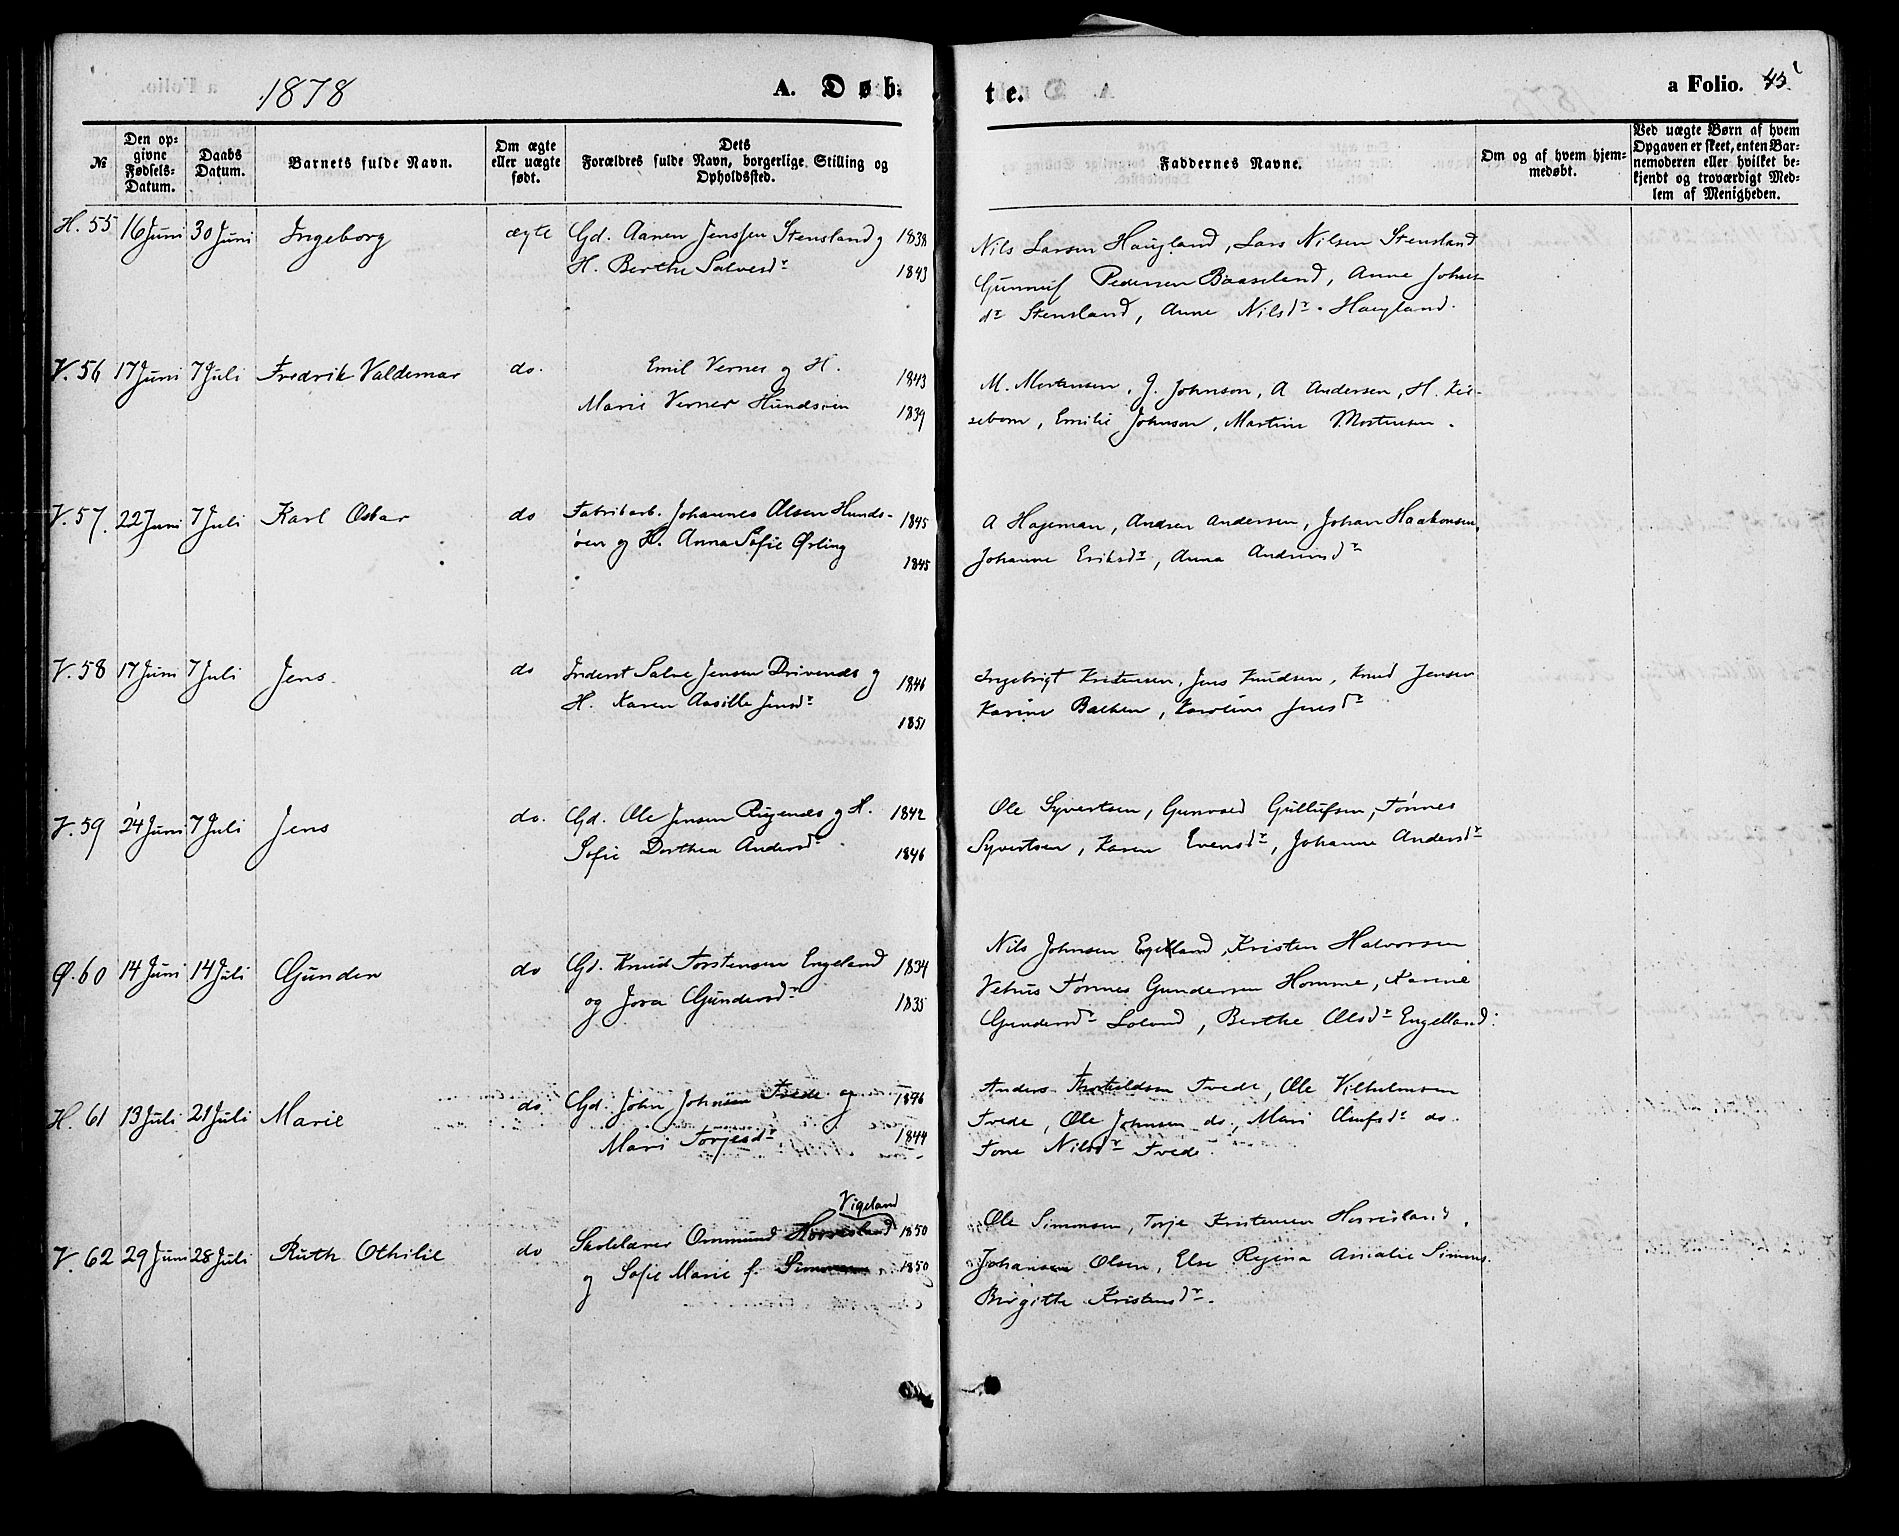 1878
A. Døb-
te.
a Folio. 45
№
Den op-
givne
Fødsels-
Datum.
Daabs
Datum.
Barnets fulde Navn.
Om ægte
eller uægte
født.
Dets
Forældres fulde Navn, borgerlige Stilling og
Opholdssted.
Faddernes Navne.
Om og af hvem hjem-
medøbt.
Ved uægte Børn af hvem
Opgaven er skeet, enten Bar-
nemoderen eller hvilket be-
kjendt og troværdigt Med-
lem af Menigheden.
H. 55 16 Juni 30 Juni Ingeborg ægte Gd. Aanen Jenssen Stensland og 1838
H. Berthe Salvesdr 1843
Nils Larsen Haugland, Lars Nilsen Stensland
Gunnuf Pedersen Baaseland, Anne Johns-
dr Stensland, Anne Nilsdr Haugland.
V. 56 17 Juni 7 Juli Fredrik Valdemar do. Emil Verner og H. 1843
Marie Verner Hundsøen 1839
M. Mortensen, J. Johnson, A Andersen, H.
Emilie Johnson, Martine Mortensen.
V. 57. 22 Juni 7 Juli Karl Oskar do Fabrikarb. Johannes Olsen Hunds- 1845
øen og H. Anna Sofie Ørling 1845
A Hageman, Andren Andersen, Johan Haakonsen,
Johanne Eriksdr, Anna
V. 58 17 Juni 7 Juli Jens do Inderst Salve Jensen Drivenes og 1846
H. Karen Aasille Jensdr 1851
Ingebrigt Kristensen, Jens Knudsen, Knud Jensen
Karine Bakken, Karoline Jensdr
V. 59 24 Juni 7 Juli Jens do. Gd. Ole Jensen Rugenes og H. 1842
Sofie Dorthea Andersdr 1846
Ole Syvertsen, Gunvald Gullufsen, Tønnes
Syvertsen, Karen Evensdr, Johanne Andersdr
Ø. 60 14 Juni 14 Juli Gunder do Gd. Knud Torstensen Engeland 1834
og Jora Gundersdr 1835
Nils Johnsen Kristen Halvorsen
Vehus Tønnes Gundersen Homme, Karine
Gundersdr Loland, Berthe Olsdr Engelland.
H. 61 13 Juli 21 Juli Marie do Gd. John Johnsen Tvede og 1846
Mari Torjesdr 1844
Anders Tvede, Ole Vilhelmsen
Tvede, Ole Johnsen do, Mari do.
Tone Nilsdr Tvede.
Vigeland
V. 62 29 Juni 28 Juli Ruth Othilie do Skolelærer Ommund Horrisland 1850
og Sofie Marie f. Simonsen 1850
Ole Simonsen, Torje Kristensen Horrisland,
Johansen Olsen, Else Regina Amalie Simons.
Birgitte Kristensdr.